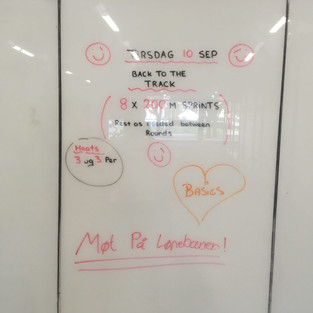 TIRSDAG 10 SEP
BACK TO THE
TRACK
8 x 200 M SPRINTS
Rest as needed between
Rounds
Heats
3 og 3 Par
BASICS
Møt På Løpebanen!